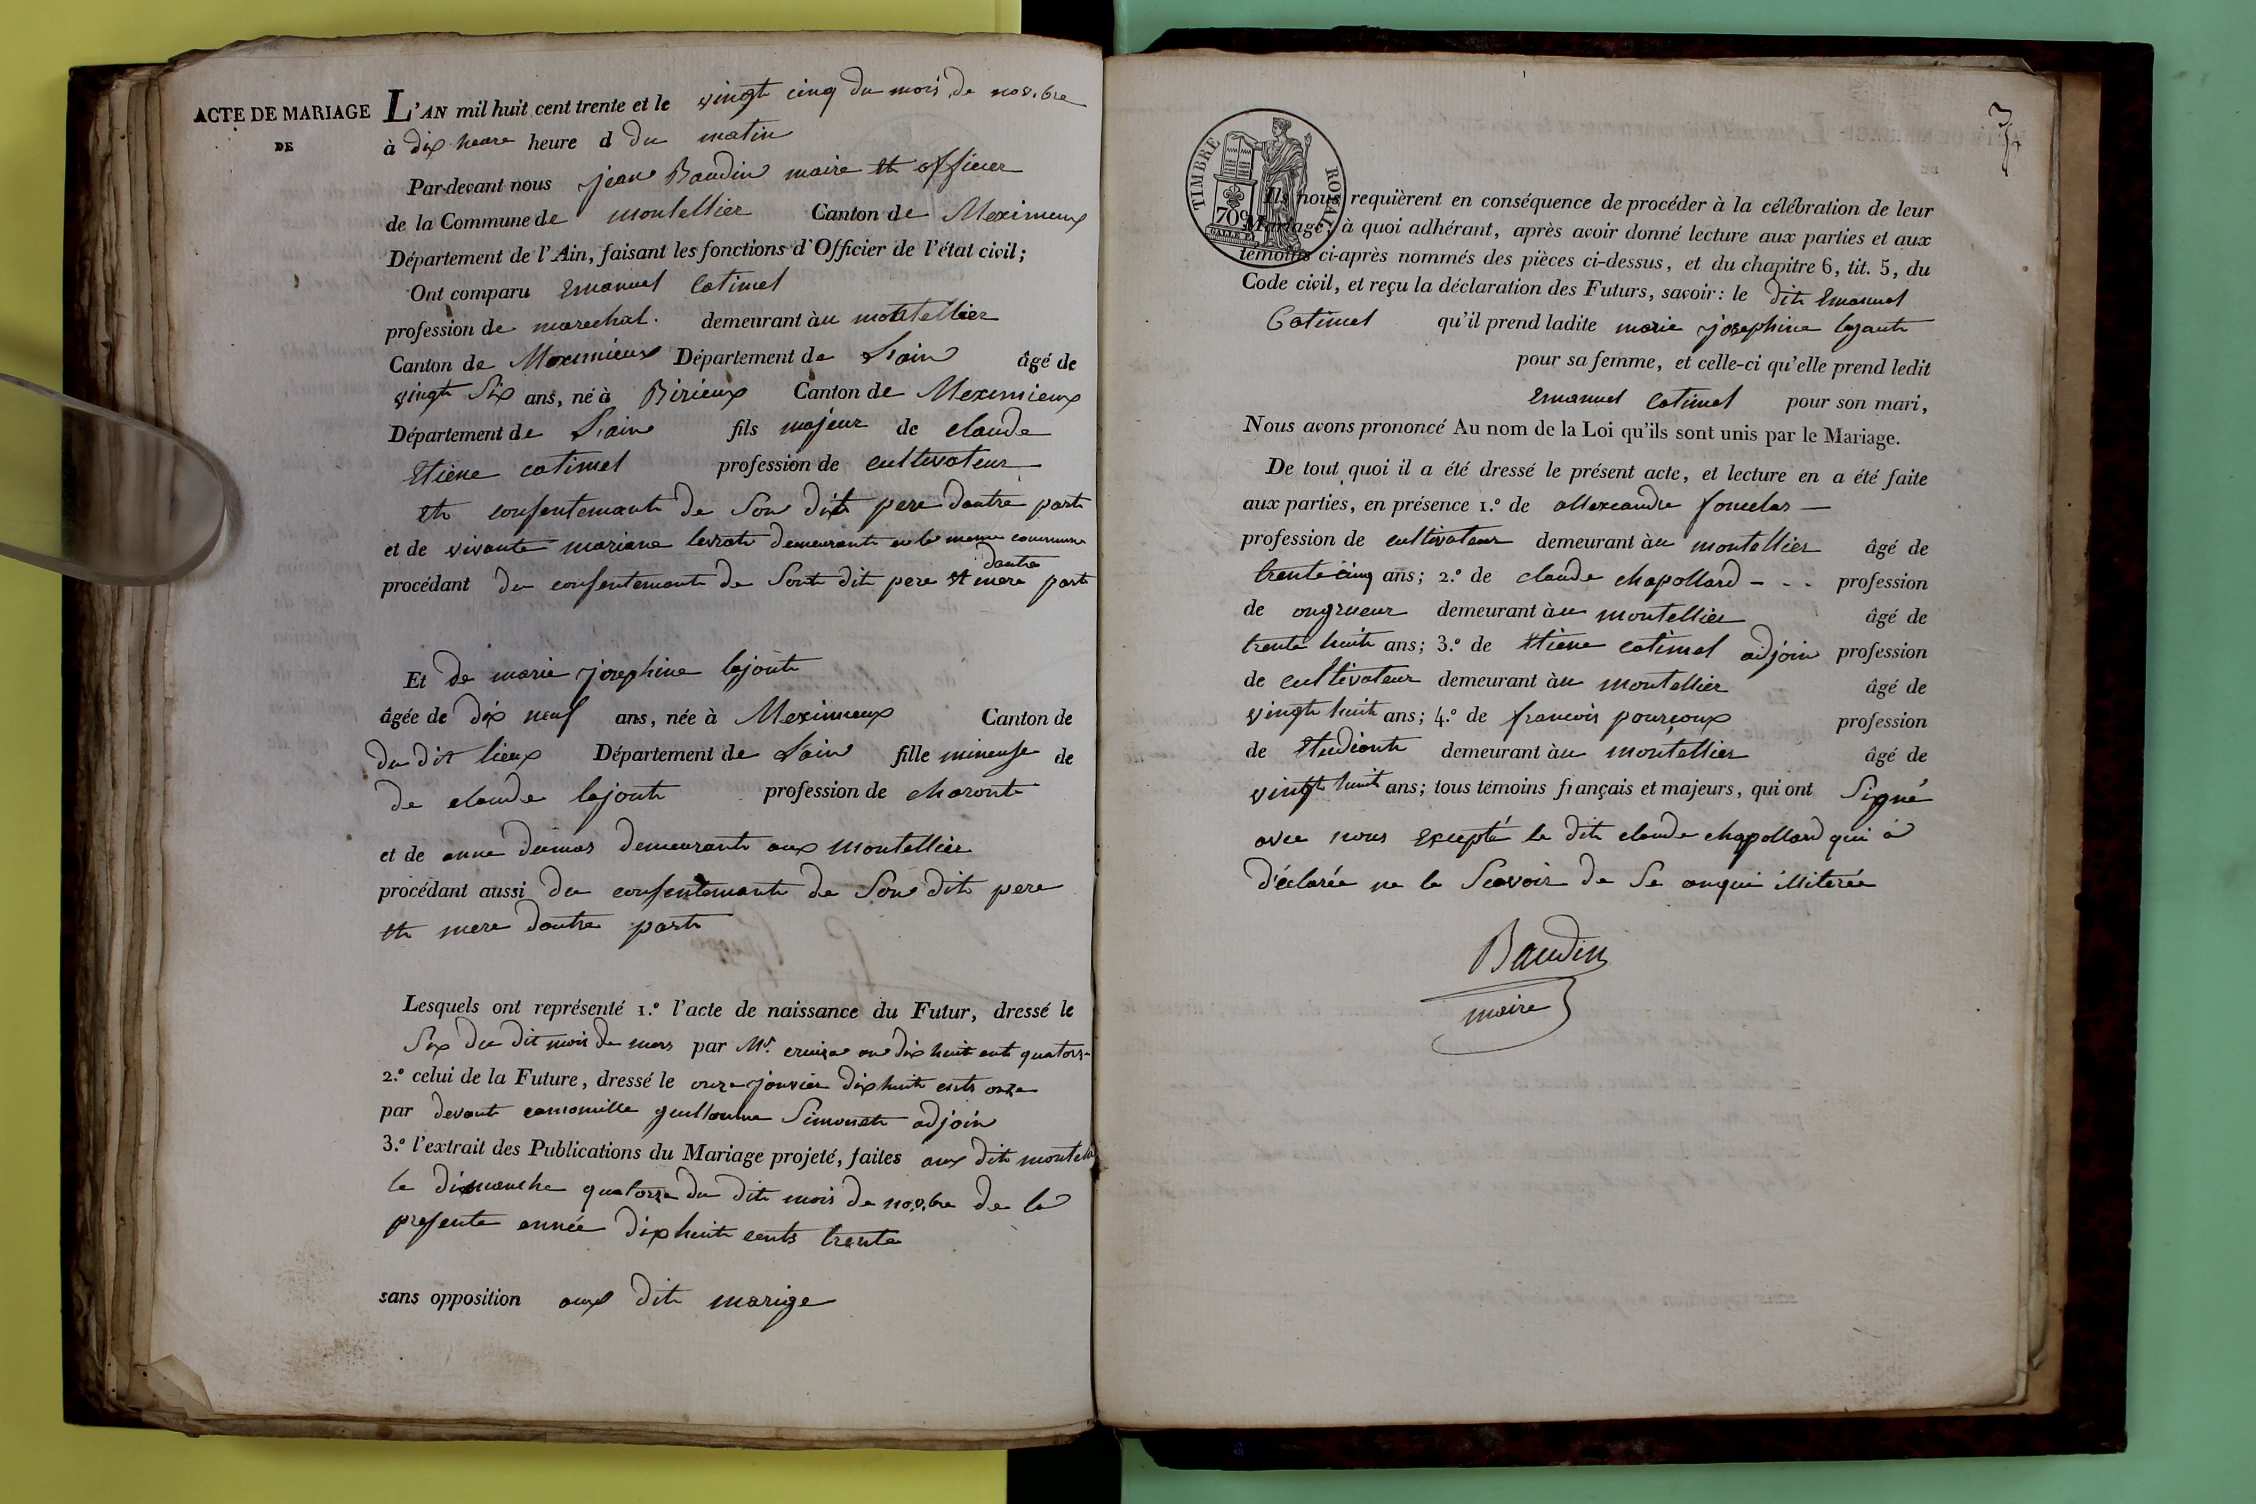 ACTE DE MARIAGE
DE
L'AN mil huit cent trente et le vingt cinq du mois de nov.bre
à dix heure heure d du matin
Par-devant nous jean Baudin maire et officier
de la Commune de montellier Canton de Meximieux
Département de l'Ain, faisant les fonctions d'Officier de l'état civil;
Ont comparu Emanuel Catimel
profession de marechal. demeurant àu montellier
Canton de Meximieux Département de Lain âgé de
vingt Six ans, né à Birieux Canton de Meximieux
Département de Lain fils majeur de claude
Etiene catimel profession de cultivateur
et consentemant de Son dit pere dautre part
et de vivante mariane levrat demeurante en la meme commune
dautre
procédant du consentemant de Sont dit pere et mere part
Et de marie josephine lajont
âgée de dix neuf ans, née à Meximieux Canton de
du dit lieux Département de Lain fille mineuse de
de claude lajont profession de charont
et de anne dumas demeurant aux montellier
procédant aussi du consentemant de Son dit pere
et mere dautre part
Lesquels ont représenté 1.º l'acte de naissance du Futur, dressé le
Six du dit mois de mars par Mr. an dix huit cent quatorze
2.º celui de la Future, dressé le onze janvier dix huit cents onze
par devant guillaume Simonet adjoin
3.º l'extrait des Publications du Mariage projeté, faites aux dit montel
le dimanche quatorze du dit mois de nov.bre de la
presente année dix huit cents trente
sans opposition aux dit marige
7
TIMBRE ROYAL
70c
Ils nous requièrent en conséquence de procéder à la célébration de leur
Mariage; à quoi adhérant, après avoir donné lecture aux parties et aux
témoins ci-après nommés des pièces ci-dessus, et du chapitre 6, tit. 5, du
Code civil, et reçu la déclaration des Futurs, savoir: le dit Emanuel
Catimel qu'il prend ladite marie josephine lajont
pour sa femme, et celle-ci qu'elle prend ledit
Emanuel catimel pour son mari,
Nous avons prononcé Au nom de la Loi qu'ils sont unis par le Mariage.
De tout quoi il a été dressé le présent acte, et lecture en a été faite
aux parties, en présence 1.º de allexandre
profession de cultivateur demeurant àu montellier âgé de
trente cinq ans; 2.º de claude chapollard profession
de demeurant àu montellier âgé de
trente huit ans; 3.º de Etiene catimel adjoin profession
de cultivateur demeurant àu montellier âgé de
vingt huit ans; 4.º de francois profession
de Etudiant demeurant àu montellier âgé de
vingt huit ans; tous témoins français et majeurs, qui ont Signé
avec nous Excepté le dit claude chapollard qui à
déclarée ne le Scavoir de Se enqui illiterée
Baudin
maire